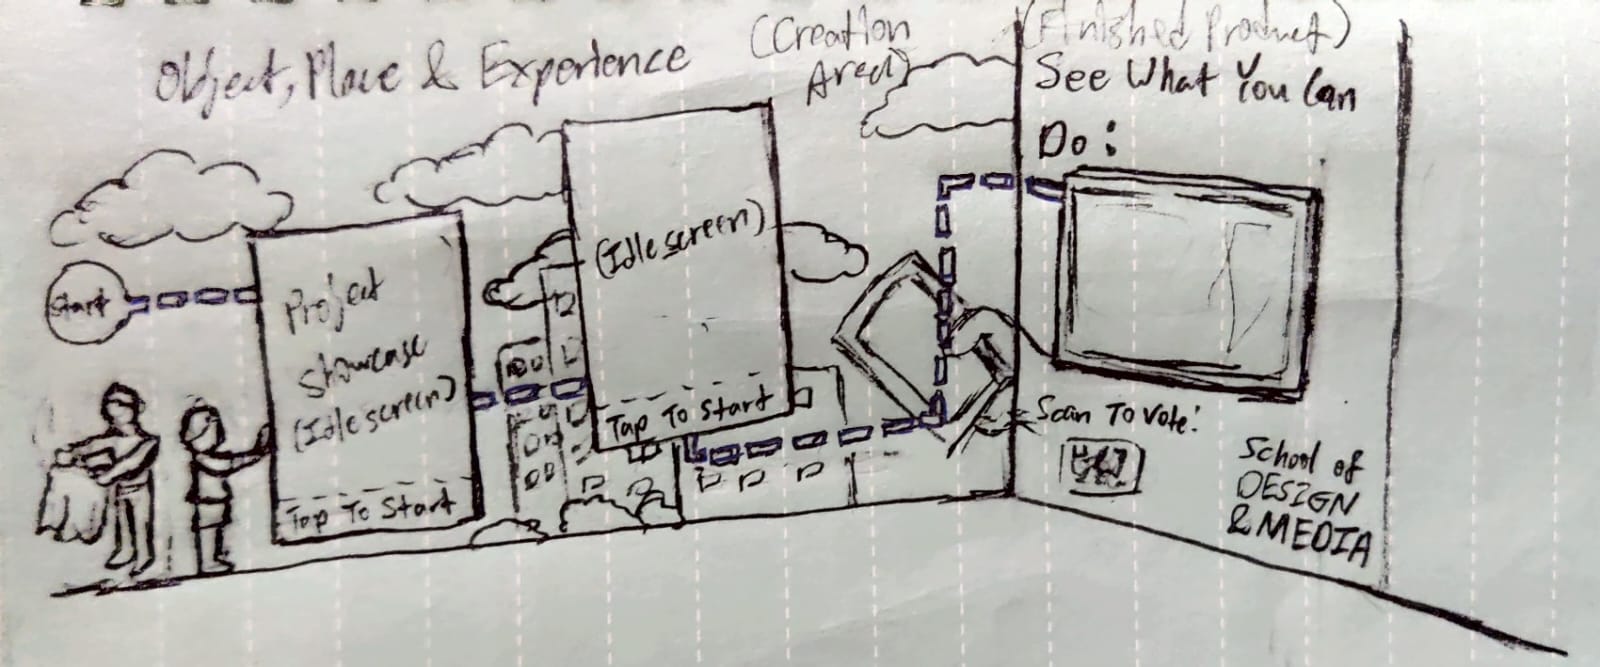 Object, Place & Experience
(Creation
Area)
(Finished Product)
See What You Can
Do:
Start
Project
Showcase
(Idle screen)
Tap To Start
(Idle screen)
Tap To Start
Scan To Vote!
School of
DESIGN
& MEDIA